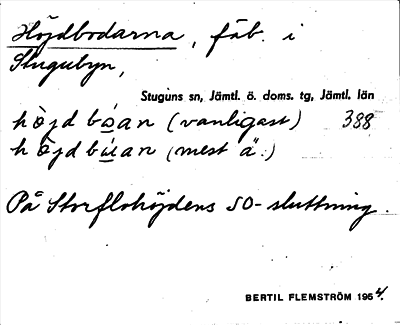 Höjdbodarna, fäb. i
Stugubyn,
Stuguns sn, Jämtl. ö. doms. tg, Jämtl. län
höjd bòan (vanligast) 388
höjd bùan (mest ä.)
På Storflohöjdens SO-sluttning.
BERTIL FLEMSTRÖM 1954.